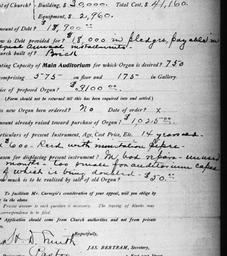 of Church? Building, $30,000. Total Cost, $41,160.
Equipment, $2,960.
Amount of Debt? 18,900.00
is Debt provided for? $18,000 in pledges, payable in
equal annual instalments.
Church built of? Brick
Seating Capacity of Main Auditorium for which Organ is desired? 750
comprising 575 on floor and 175 in Gallery.
Price of proposed Organ? $3100.00
(Form should not be returned till this has been required item and settled.)
is new Organ been ordered? No Date of order? x
Amount already raised toward purchase of Organ? $1025.00
Particulars of present Instrument, Age, Cost Price, Etc. 14 years old.
$600. Reed with imitation pipes.
Reason for displacing present instrument? In bad repair
months. Too small for auditorium
of which is being doubled. $50.00
much is to be realized by sale of old Organ?
To facilitate Mr. Carnegie's consideration of your appeal, will you oblige by
in the above
Precise answer to each question is necessary.
correspondence is to be filed.
Application should come from Church authorities and not from private
Respectfully,
H. D. Smith
Pastor
JAS. BERTRAM, Secretary,